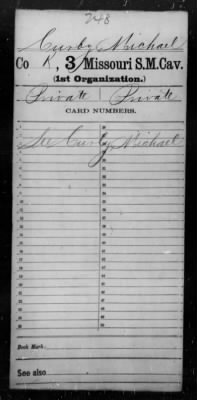 248
Curby Michael
Co K, 3 Missouri S.M.Cav.
(1st Organization.)
Private Private
CARD NUMBERS.
See Curby, Michael
Book Mark:
See also